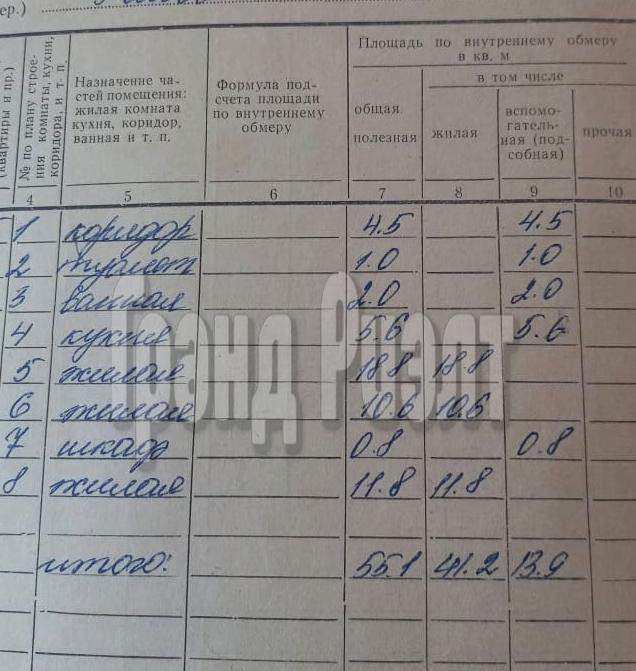 ер.)
(квартиры и пр.)
№ по плану строе-
ния комнаты, кухни,
коридора, и т. п.
Назначение ча-
стей помещения:
жилая комната
кухня, коридор,
ванная и т. п.
Формула под-
счета площади
по внутреннему
обмеру
Площадь по внутреннему обмеру
в кв. м
общая
полезная
в том числе
жилая
вспомо-
гатель-
ная (под-
собная)
прочая
4 5 6 7 8 9 10
1 коридор 4.5 4.5
2 туалет 1.0 1.0
3 ванная 2.0 2.0
4 кухня 5.6 5.6
5 жилая 18.8 18.8
6 жилая 10.6 10.6
7 шкаф 0.8 0.8
8 жилая 11.8 11.8
итого: 55.1 41.2 13.9
Гранд Риэлт